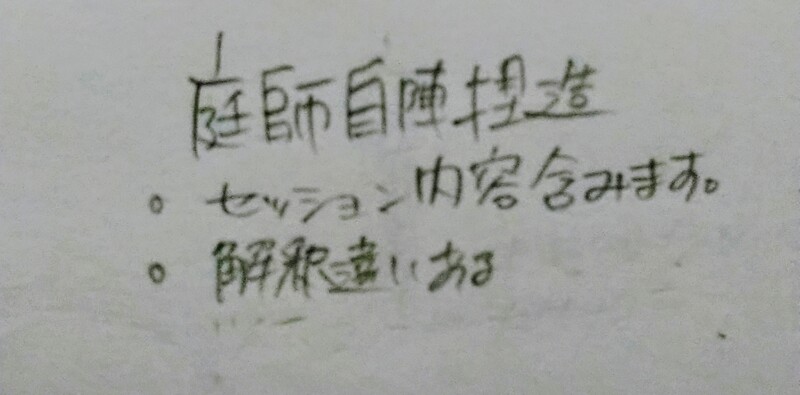 庭師自陣捏造
。セッション内容含みます。
。解釈違いある